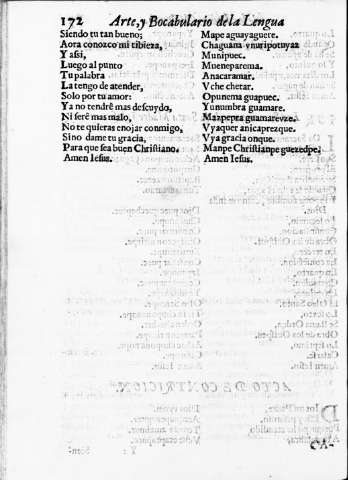 172 Arte, y Bocabulario dela Lengua
Siendo tu tan bueno;
Aora conozco mi tibieza,
Y assi,
Luego al punto
Tu palabra
La tengo de atender,
Solo por tu amor:
Ya no tendrè mas descuydo,
Ni serè mas malo,
No te quieras enojar conmigo,
Sino dame tu gracia,
Para que sea buen Christiano.
Amen Iesus.
Mape aguayaguere.
Chaguana ynuripotuyaz
Munipuec.
Mueneparoma.
Anacaramar.
Vche chetar.
Opunema guapuec.
Yunumbra guamare.
Mazpepra guamarevze.
Vyaquer anicaprezque.
Vya gracia onque.
Manpe Christianpe guezedpe.
Amen Iesus.
CA-